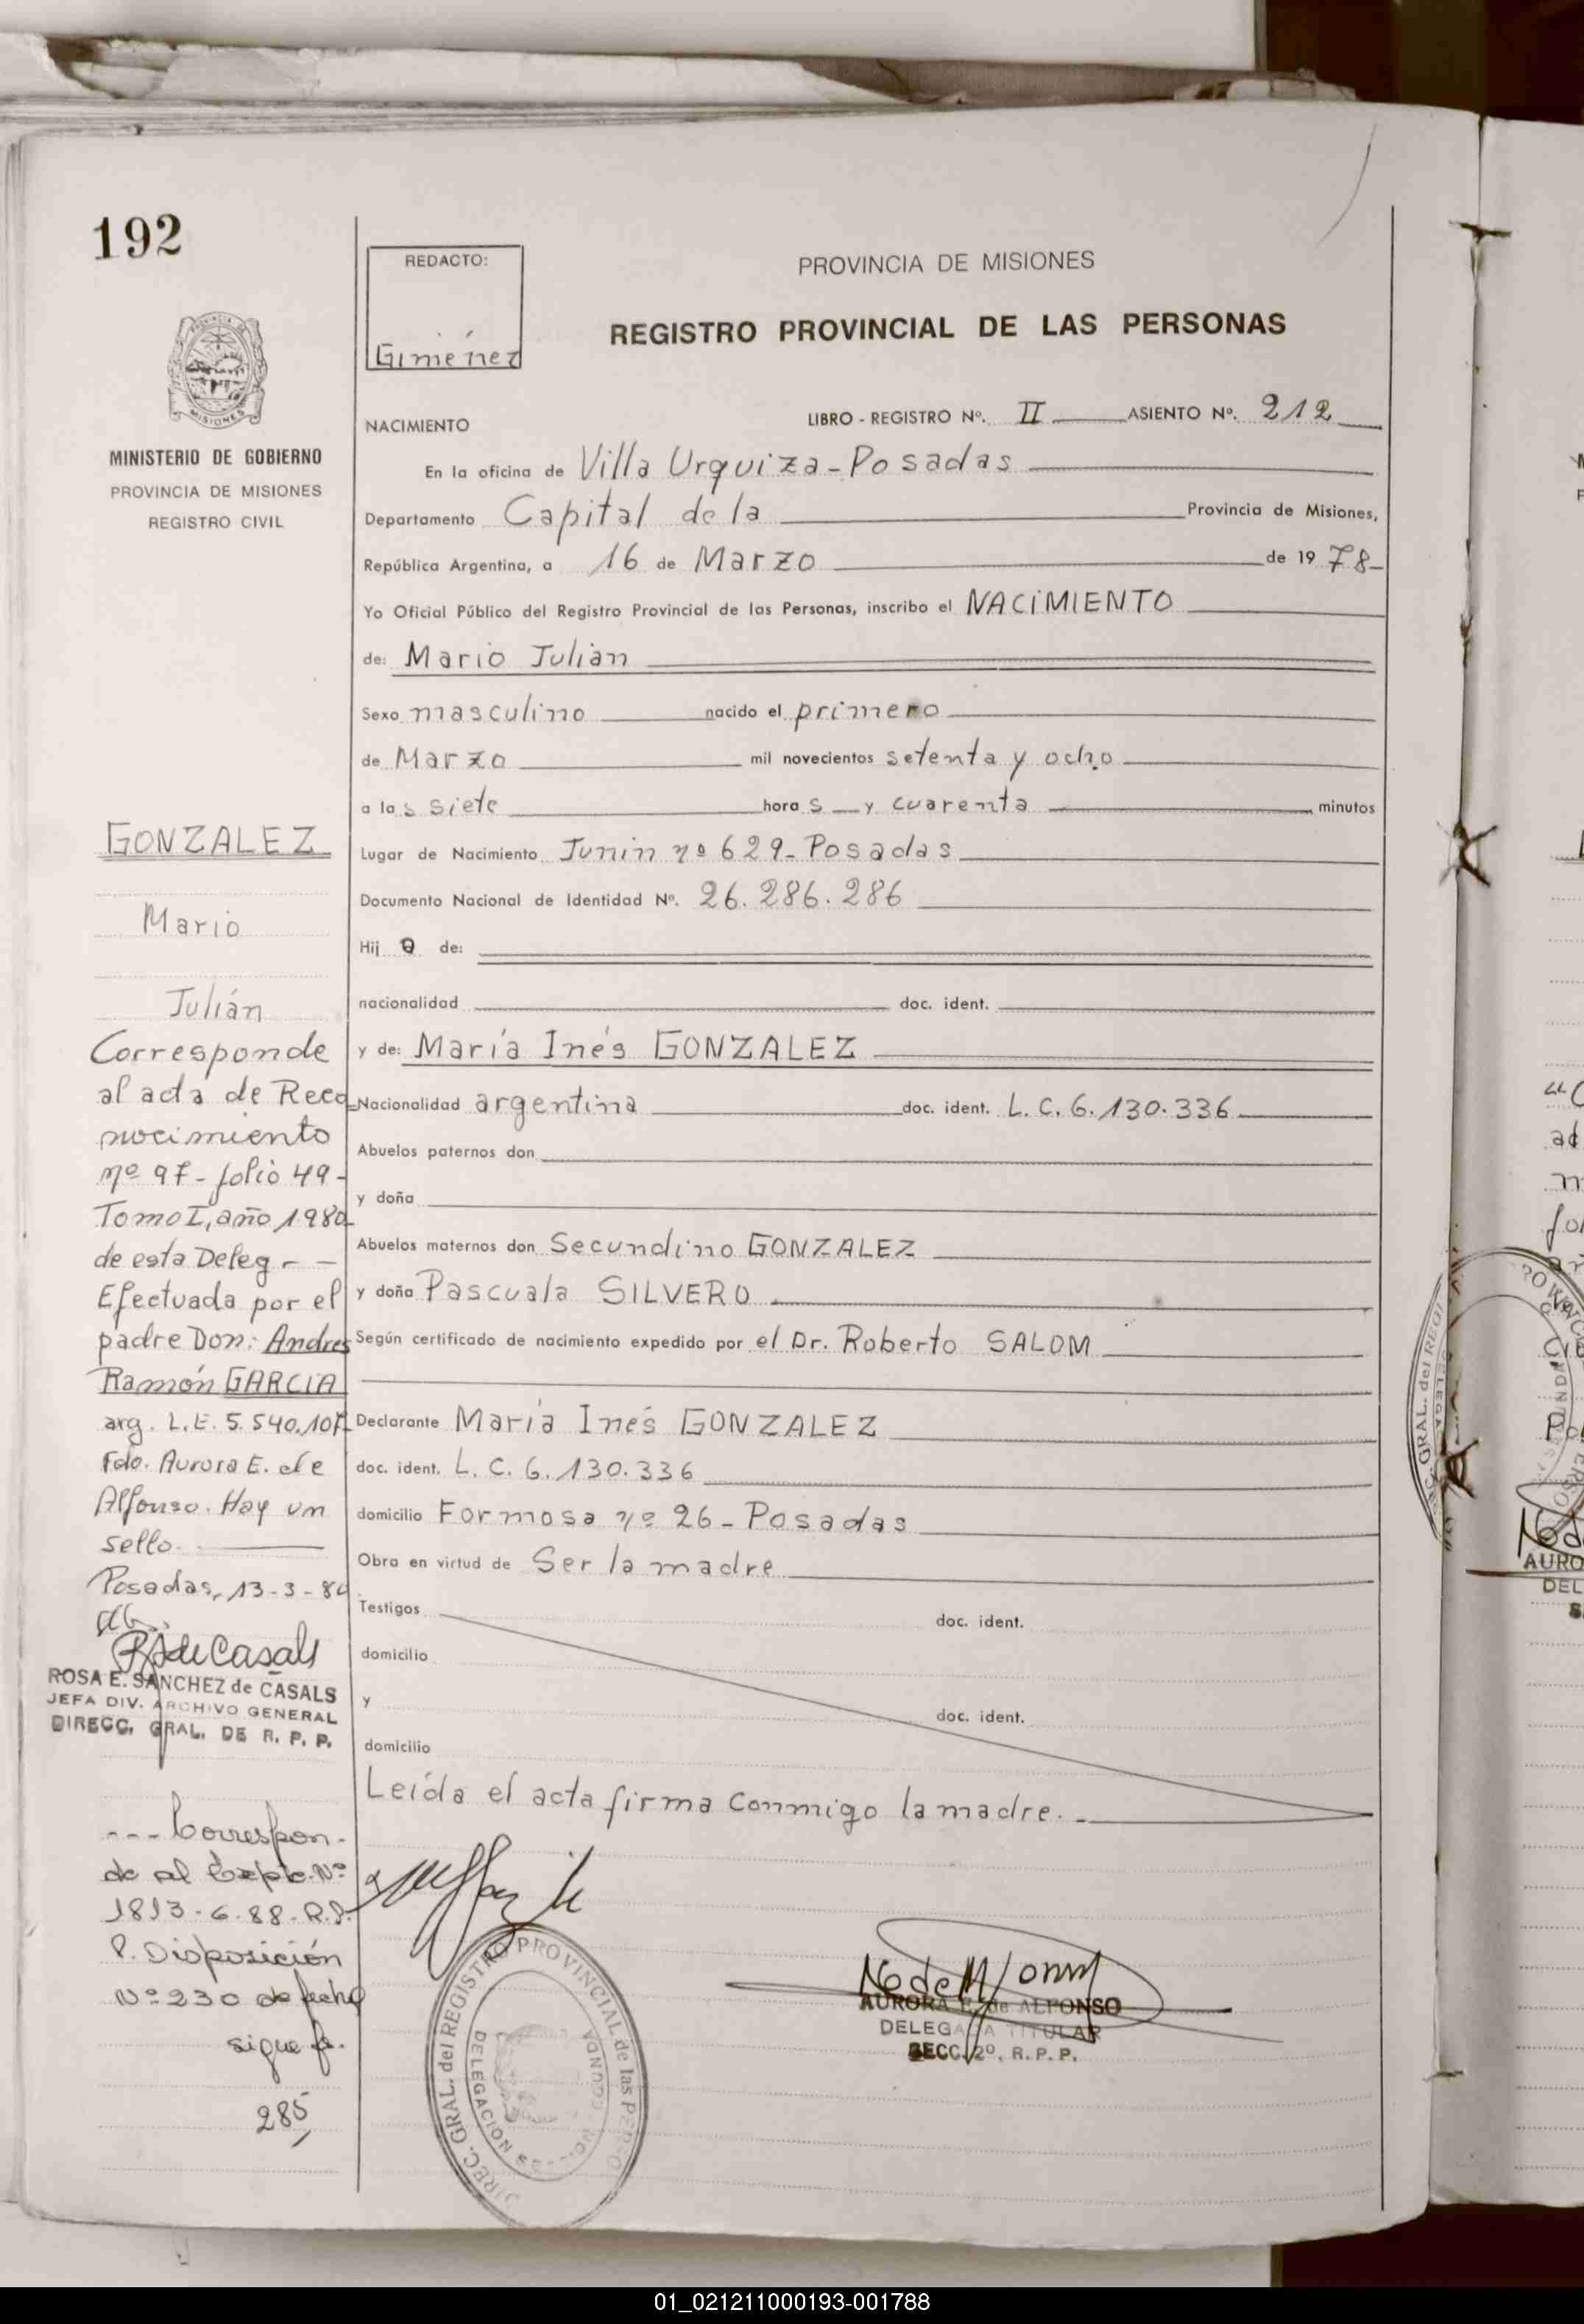 192
MINISTERIO DE GOBIERNO
PROVINCIA DE MISIONES
REGISTRO CIVIL
GONZALEZ
Mario
Julián
Corresponde
al acta de Reco-
nocimiento
nº 97 - folio 49 -
Tomo I, año 1980
de esta Deleg. - -
Efectuada por el
padre Don: Andres
Ramón GARCIA
arg. L.E. 5.540.107
Fdo. Aurora E. de
Alfonso. Hay un
sello.
Posadas, 13-3-80
ROSA E. SANCHEZ de CASALS
JEFA DIV. ARCHIVO GENERAL
DIRECC. GRAL. DE R. P. P.
--- Correspon-
de al Expte. Nº
1813 - G - 88 - R.P.
P. Disposición
Nº 230 de fecha
sigue fo.
285
REDACTO:
Giménez
PROVINCIA DE MISIONES
REGISTRO PROVINCIAL DE LAS PERSONAS
NACIMIENTO LIBRO - REGISTRO Nº. II ASIENTO Nº. 212
En la oficina de Villa Urquiza - Posadas
Departamento Capital de la Provincia de Misiones,
República Argentina, a 16 de Marzo de 1978
Yo Oficial Público del Registro Provincial de las Personas, inscribo el NACIMIENTO
de: Mario Julián
Sexo masculino nacido el primero
de Marzo mil novecientos setenta y ocho
a las siete horas y cuarenta minutos
Lugar de Nacimiento Junin nº 629 - Posadas
Documento Nacional de Identidad Nº. 26.286.286
Hijo de:
nacionalidad doc. ident.
y de: María Inés GONZALEZ
Nacionalidad argentina doc. ident. L. C. 6.130.336
Abuelos paternos don
y doña
Abuelos maternos don Secundino GONZALEZ
y doña Pascuala SILVERO
Según certificado de nacimiento expedido por el Dr. Roberto SALOM
Declarante María Inés GONZALEZ
doc. ident. L. C. 6.130.336
domicilio Formosa nº 26 - Posadas
Obra en virtud de Ser la madre
Testigos doc. ident.
domicilio
y doc. ident.
domicilio
Leída el acta firma conmigo la madre.
DIREC. GRAL. del REGISTRO PROVINCIAL de las PERSO
DELEGACION
AURORA E. de ALFONSO
DELEGADA TITULAR
SECC. 2º. R. P. P.
AURO
DEL
01_021211000193-001788